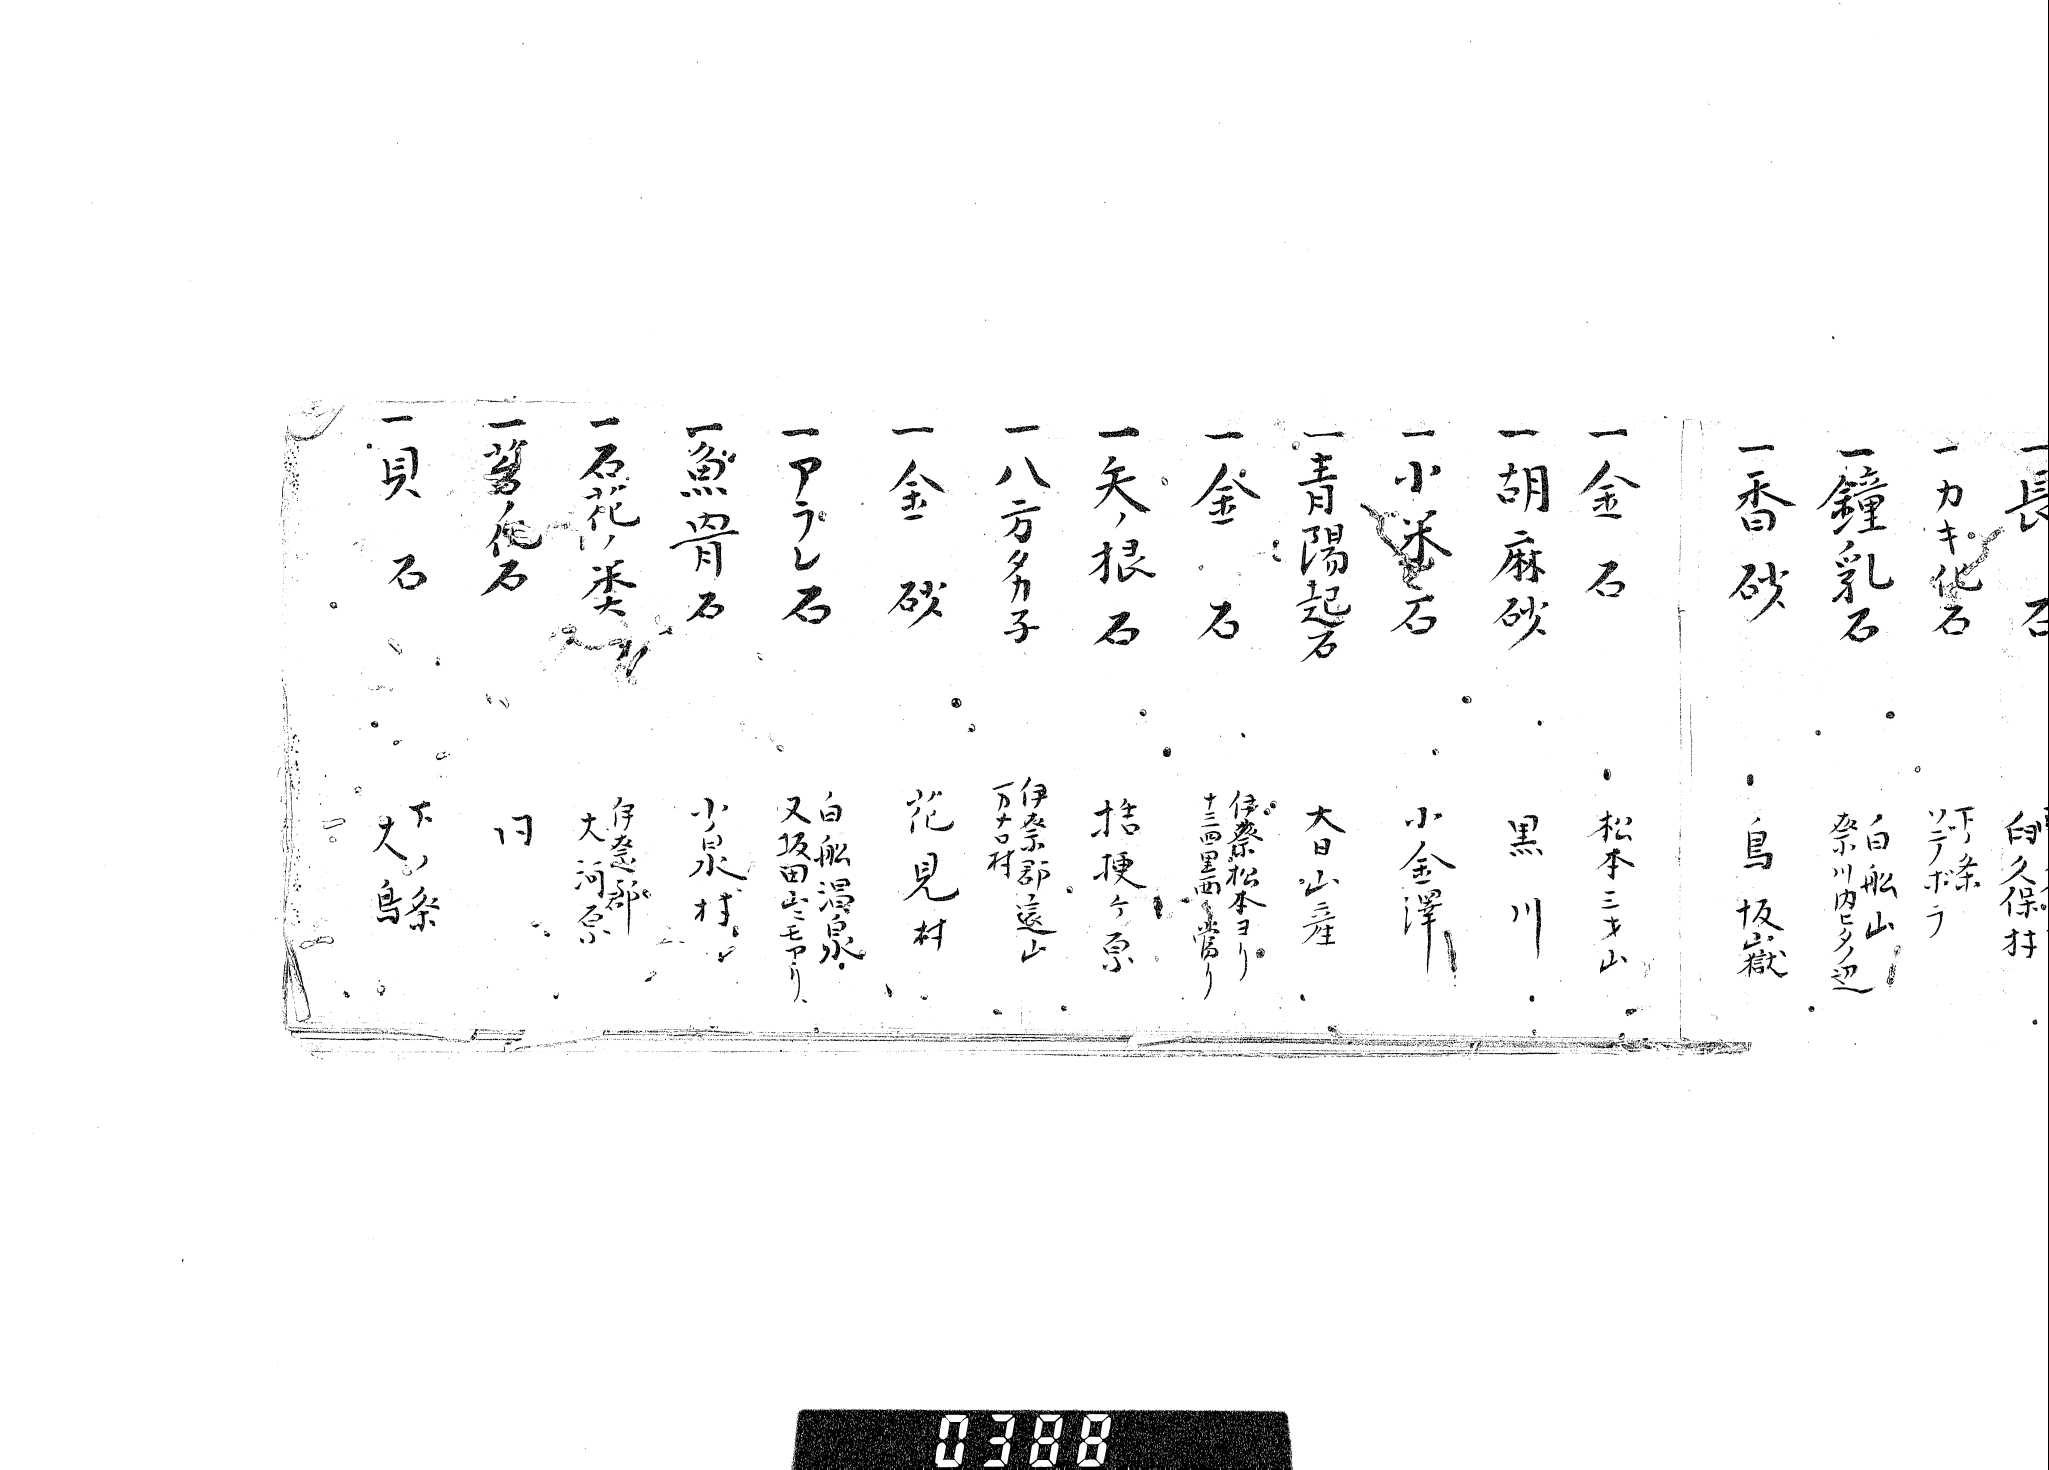 一長石
臼久保村
一カキ化石
下条
ソテノボラ
一鐘乳石
白船山
奈川内ヒタノ辺
一香砂
鳥坂嶽
一金石
松本三才山
一胡麻砂
黒川
一小米石
小金澤
一青陽起石
大日山産
一金石
伊奈松本ヨリ
十三四里西ノ当り
一矢ノ根石
桔梗ヶ原
一八方タカ子
伊奈郡遠山
万ナロ村
一金砂
花見村
一アラレ石
白船温泉
又坂田山ニモアリ、
一魚骨石
小泉村
一石花ノ类
伊奈郡
大河原
一ノ化石
同
一貝石
下ノ条
大鳥
0388